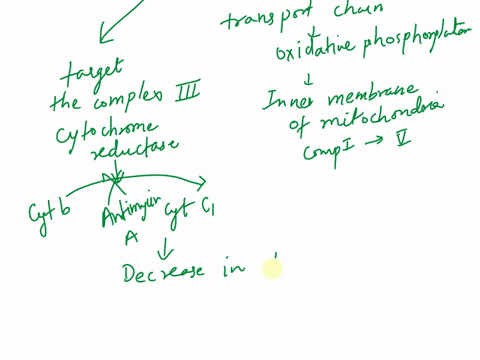 target
the complex III
cytochrome
reductase
Cyt b
Antimycin
A
Cyt C1
Decrease in
transport chain
oxidative phosphorylation
Inner membrane
of mitochondria
Comp I → V